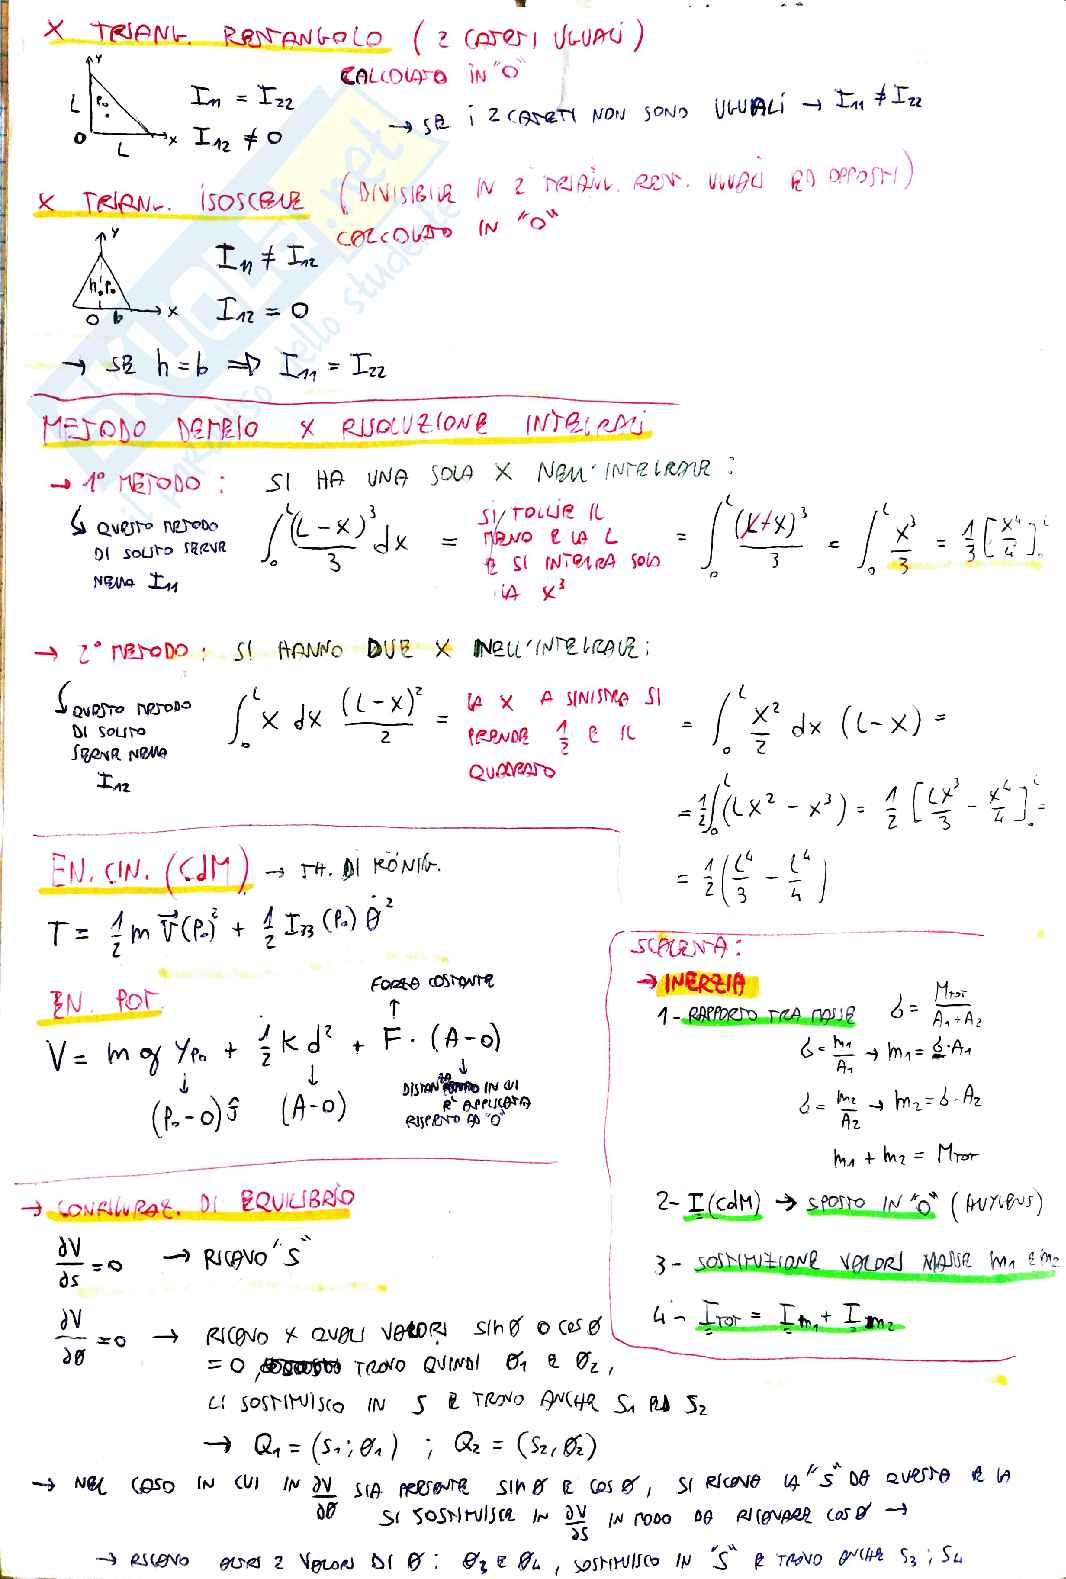 X TRIANG. RETTANGOLO (2 CATETI UGUALI)
CALCOLATO IN "O"
Y
L
P₀
O
L
X
I₁₁ = I₂₂
I₁₂ ≠ 0
→ SE I 2 CATETI NON SONO UGUALI → I₁₁ ≠ I₂₂
X TRIANG. ISOSCELE (DIVISIBILE IN 2 TRIANG. RETT. UGUALI ED OPPOSTI)
CALCOLATO IN "O"
Y
h P₀
O b
X
I₁₁ ≠ I₁₂
I₁₂ = 0
→ SE h = b ⇒ I₁₁ = I₂₂
METODO DEMEIO X RISOLUZIONE INTEGRALI
→ 1° METODO: SI HA UNA SOLA X NELL'INTEGRALE:
↳ QUESTO METODO DI SOLITO SERVE NELLA I₁₁
∫₀ᴸ (L-X)³/3 dX = SI TOGLIE IL MENO E LA L E SI INTEGRA SOLO LA X³ = ∫₀ᴸ (L+X)³/3 = ∫₀ᴸ X³/3 = 1/3 [X⁴/4]₀ᴸ
→ 2° METODO: SI HANNO DUE X NELL'INTEGRALE:
↳ QUESTO METODO DI SOLITO SERVE NELLA I₁₂
∫₀ᴸ X dX (L-X)²/2 = LA X A SINISTRA SI PRENDE 1/2 E IL QUADRATO = ∫₀ᴸ X²/2 dX (L-X) =
= 1/2 ∫₀ᴸ (LX² - X³) = 1/2 [LX³/3 - X⁴/4]₀ᴸ =
= 1/2 (L⁴/3 - L⁴/4)
EN. CIN. (CdM) → TH. DI KÖNIG.
T = 1/2 m V⃗(P₀)² + 1/2 I₃₃(P₀) θ̇²
EN. POT.
FORZA COSTANTE
↑
V = m g Y_P₀ + 1/2 K d² + F · (A-O)
↓ ↓ ↓
(P₀-O)ĵ (A-O)
DISTANZA IN CUI
E' APPLICATA
RISPETTO AD "O"
SCALETTA:
→ INERZIA
1- RAPPORTO TRA MASSE δ = M_TOT/(A₁+A₂)
δ = m₁/A₁ → m₁ = δ·A₁
δ = m₂/A₂ → m₂ = δ·A₂
m₁ + m₂ = M_TOT
2- I(CdM) → SPOSTO IN "O" (HUYGENS)
3- SOSTITUZIONE VALORI MASSE m₁ E m₂
4- I_TOT = I_m₁ + I_m₂
→ CONFIGURAZ. DI EQUILIBRIO
∂V/∂s = 0 → RICAVO "S"
∂V/∂θ = 0 → RICAVO X QUALI VALORI sinθ O cosθ
= 0, TROVO QUINDI θ₁ E θ₂,
LI SOSTITUISCO IN S E TROVO ANCHE S₁ ED S₂
→ Q₁ = (S₁; θ₁) ; Q₂ = (S₂, θ₂)
→ NEL CASO IN CUI IN ∂V/∂θ SIA PRESENTE sinθ E cosθ, SI RICAVA LA "S" DA QUESTA E LA
SI SOSTITUISCE IN ∂V/∂s IN MODO DA RICAVARE cosθ →
→ RICAVO ALTRI 2 VALORI DI θ: θ₃ E θ₄, SOSTITUISCO IN "S" E TROVO ANCHE S₃; S₄
SKUOLA.net
il paradiso dello studente